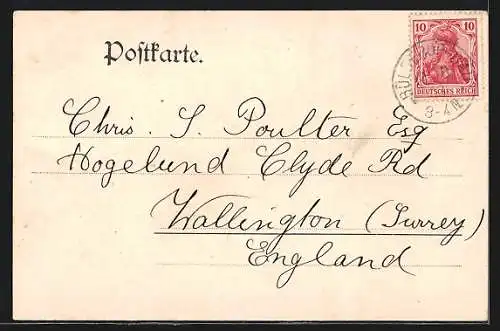 Postkarte.
10 10
DEUTSCHES REICH
8-4N.
Chris. S. Poulter Esq
Hogelund Clyde Rd
Wallington (Surrey)
England